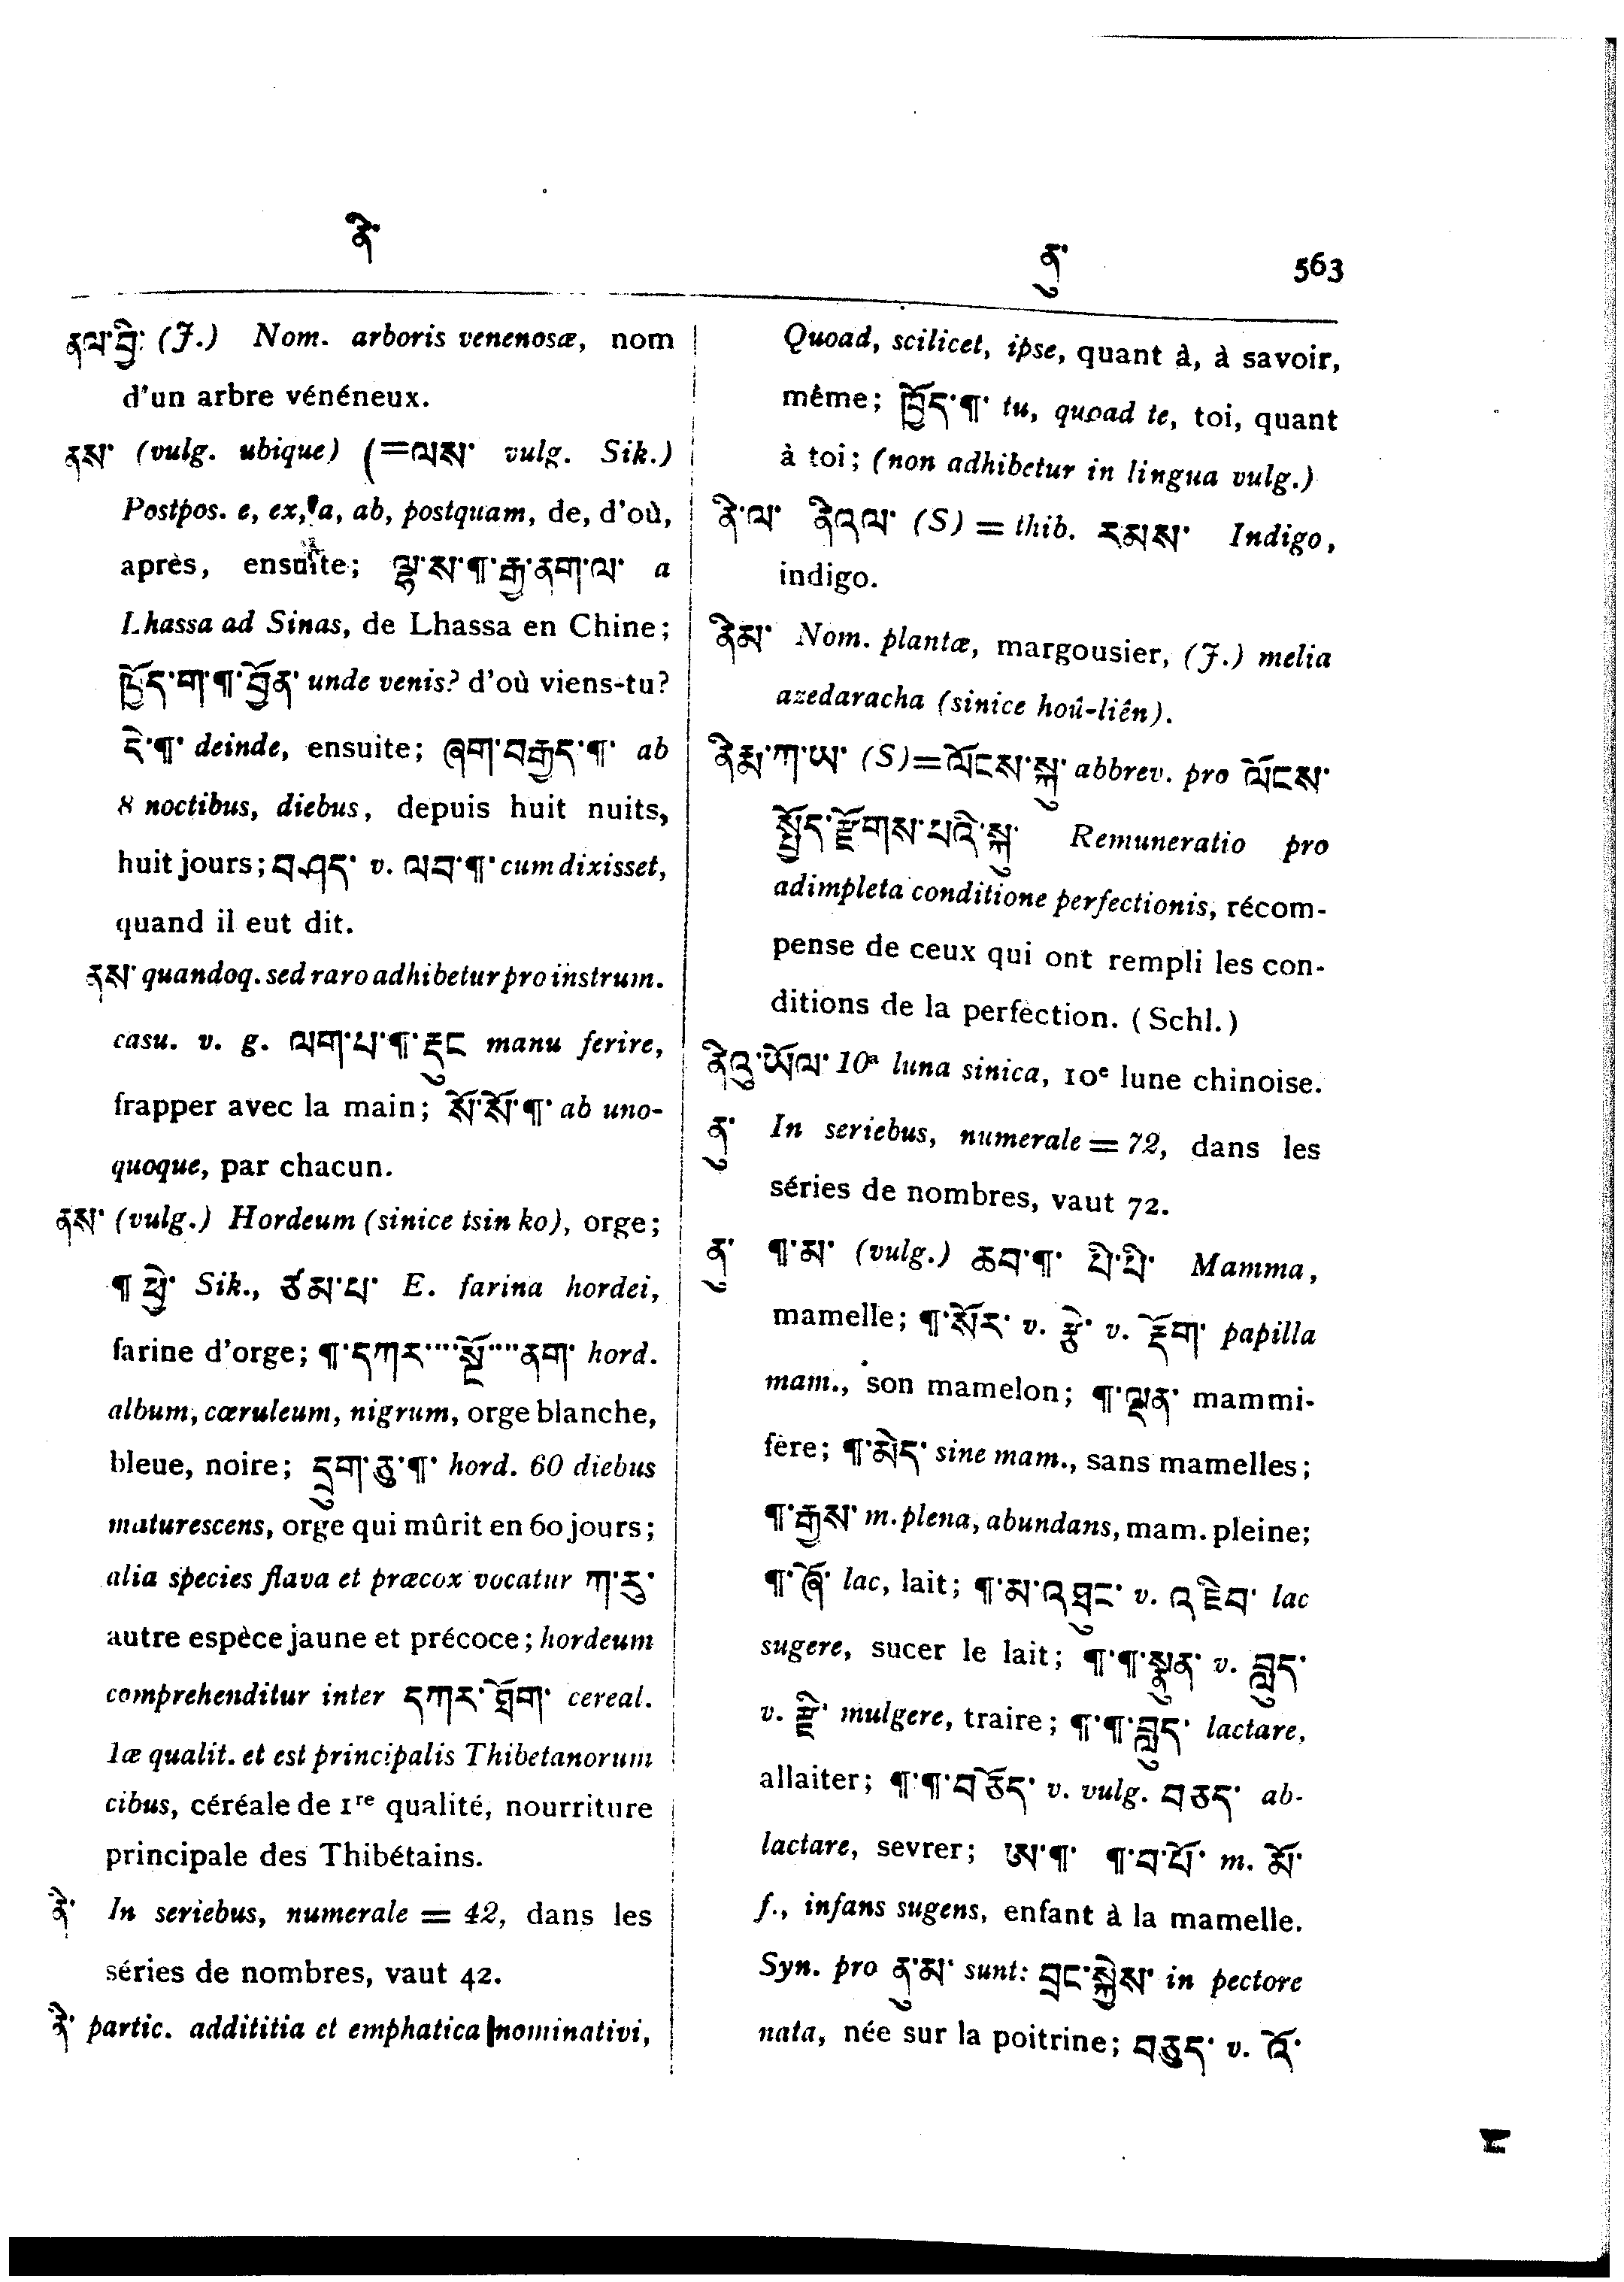 ནི་
ནུ་ 563
ནལ་བྱི་ (J.) Nom. arboris venenosæ, nom
d'un arbre vénéneux.
ནས་ (vulg. ubique) (=ལས་ vulg. Sik.)
Postpos. e, ex, a, ab, postquam, de, d'où,
après, ensuite; ལྷ་ས་¶་རྒྱ་ནག་ལ་ a
Lhassa ad Sinas, de Lhassa en Chine;
ཁྱོད་ག་¶་བྱོན་ unde venis? d'où viens-tu?
དེ་¶་ deinde, ensuite; ཞག་བརྒྱད་¶་ ab
8 noctibus, diebus, depuis huit nuits,
huit jours; བཤད་ v. ལབ་¶་ cum dixisset,
quand il eut dit.
ནས་ quandoq. sed raro adhibetur pro instrum.
casu. v. g. ལག་པ་¶་རྡུང manu ferire,
frapper avec la main; སོ་སོ་¶་ ab uno-
quoque, par chacun.
ནས་ (vulg.) Hordeum (sinice tsin ko), orge;
¶ ཕྱེ་ Sik., ཙམ་པ་ E. farina hordei,
farine d'orge; ¶་དཀར་""སྔོ""ནག་ hord.
album, cæruleum, nigrum, orge blanche,
bleue, noire; དྲུག་ཅུ་¶་ hord. 60 diebus
maturescens, orge qui mûrit en 60 jours;
alia species flava et præcox vocatur ཀ་རུ་
autre espèce jaune et précoce; hordeum
comprehenditur inter དཀར་ཐོག་ cereal.
1æ qualit. et est principalis Thibetanorum
cibus, céréale de 1re qualité, nourriture
principale des Thibétains.
ནི་ In seriebus, numerale = 42, dans les
séries de nombres, vaut 42.
ནི་ partic. addititia et emphatica nominativi,
Quoad, scilicet, ipse, quant à, à savoir,
même; ཁྱོད་¶་ tu, quoad te, toi, quant
à toi; (non adhibetur in lingua vulg.)
ནི་ལ་ ནཱིལ་ (S) = thib. རམས་ Indigo,
indigo.
ནིམ་ Nom. plantæ, margousier, (J.) melia
azedaracha (sinice hoû-liên).
ནིརྨ་ཀ་ཡ་ (S)=ལོངས་སྐུ་ abbrev. pro ལོངས་
སྤྱོད་རྫོགས་པའི་སྐུ་ Remuneratio pro
adimpleta conditione perfectionis, récom-
pense de ceux qui ont rempli les con-
ditions de la perfection. (Schl.)
ནིའུ་ཡོལ་ 10a luna sinica, 10e lune chinoise.
ནུ་ In seriebus, numerale = 72, dans les
séries de nombres, vaut 72.
ནུ་ ¶་མ་ (vulg.) ཆབ་¶་ པི་པི་ Mamma,
mamelle; ¶་སོར་ v. རྩེ་ v. རྡོག་ papilla
mam., son mamelon; ¶་ལྡན་ mammi-
fère; ¶་མེད་ sine mam., sans mamelles;
¶་རྒྱས་ m. plena, abundans, mam. pleine;
¶་ཞོ་ lac, lait; ¶་མ་འཐུང་ v. འཇིབ་ lac
sugere, sucer le lait; ¶་¶་སྣུན་ v. བླུད་
v. རྫི་ mulgere, traire; ¶་¶་བླུད་ lactare,
allaiter; ¶་¶་བཅོད་ v. vulg. བཅད་ ab-
lactare, sevrer; ཨ་¶་ ¶་བ་པོ་ m. མོ་
f., infans sugens, enfant à la mamelle.
Syn. pro ནུ་མ་ sunt: བྲང་སྐྱེས་ in pectore
nata, née sur la poitrine; བཅུད་ v. འོ་